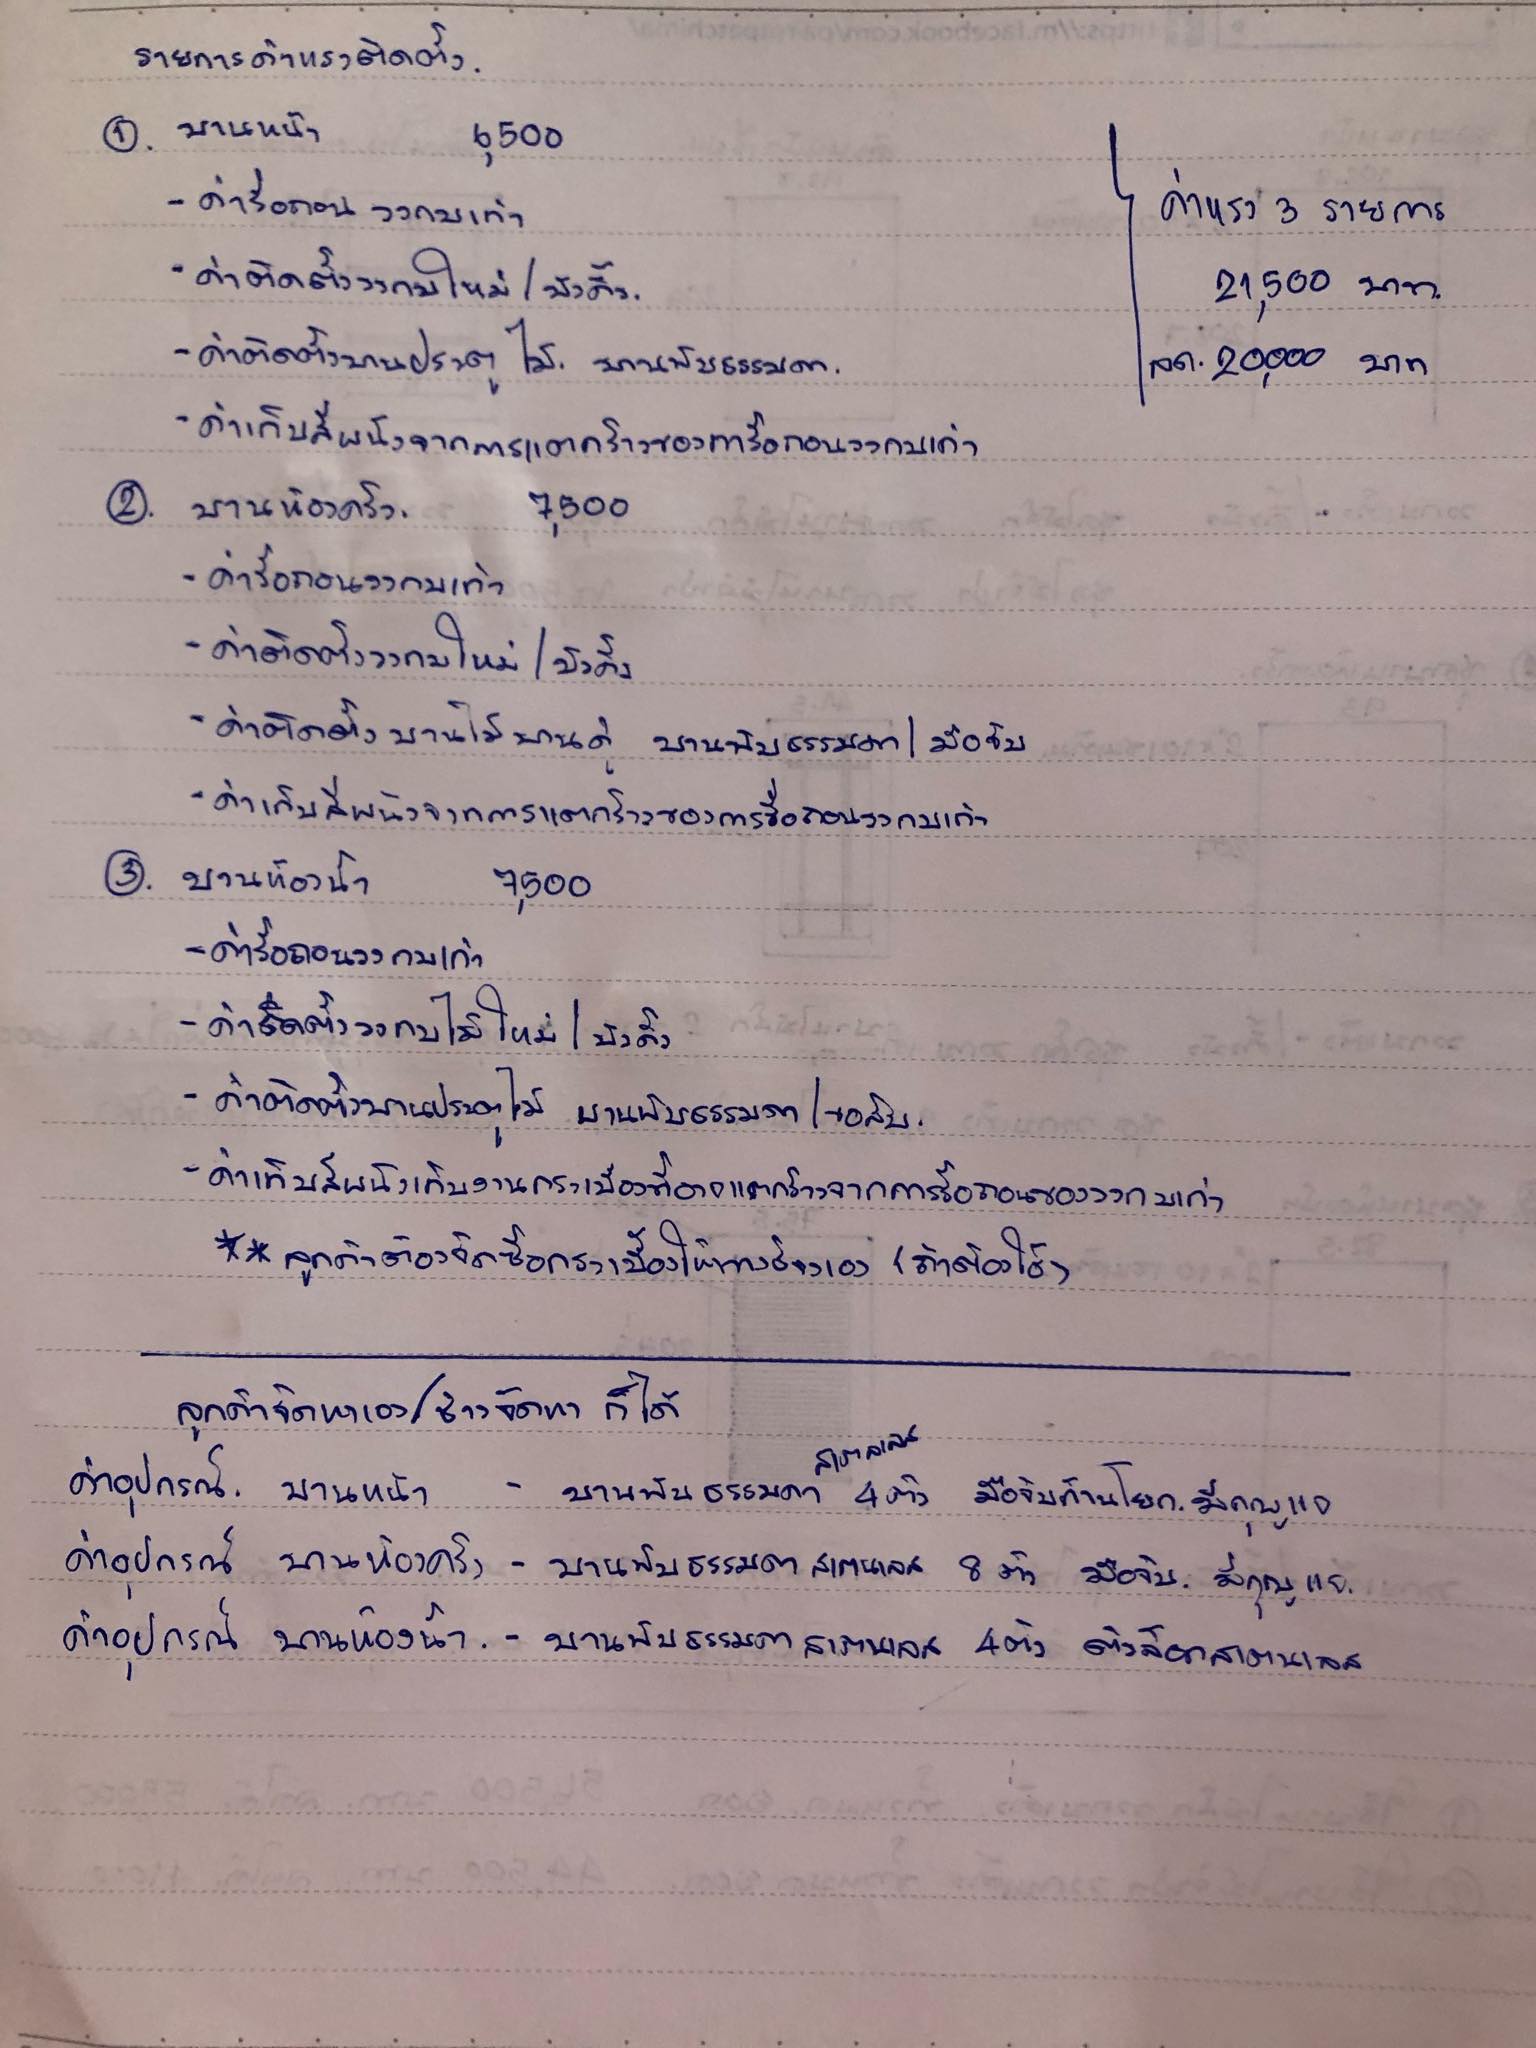 รายการค่าแรงติดตั้ง.
①. บานหน้า 6,500
- ค่ารื้อถอน วงกบเก่า
- ค่าติดตั้งวงกบใหม่ / บังคิ้ว.
- ค่าติดตั้งบานประตูไม้. บานพับธรรมดา.
- ค่าเก็บสีผนังจากการแตกร้าวของการื้อถอนวงกบเก่า
ค่าแรง 3 รายการ
21,500 บาท.
ลด. 20,000 บาท
②. บานห้องครัว. 7,500
- ค่ารื้อถอนวงกบเก่า
- ค่าติดตั้งวงกบใหม่ / บังคิ้ว
- ค่าติดตั้งบานไม้บานคู่ บานพับธรรมดา / มือจับ
- ค่าเก็บสีผนังจากการแตกร้าวของการรื้อถอนวงกบเก่า
③. บานห้องน้ำ 7,500
- ค่ารื้อถอนวงกบเก่า
- ค่าติดตั้งวงกบไม้ใหม่ / บังคิ้ว
- ค่าติดตั้งบานประตูไม้ บานพับธรรมดา / ขอสับ.
- ค่าเก็บสีผนังเก็บงานกระเบื้องที่อาจแตกร้าวจากการรื้อถอนของวงกบเก่า
** ลูกค้าต้องจัดซื้อกระเบื้องให้ทางช่างเอง (ถ้าต้องใช้)
ลูกค้าจัดหาเอง/ช่างจัดหา ก็ได้
ค่าอุปกรณ์. บานหน้า - บานพับธรรมดา สแตนเลส 4 ตัว มือจับก้านโยก. มีกุญแจ
ค่าอุปกรณ์ บานห้องครัว - บานพับธรรมดา สแตนเลส 8 ตัว มือจับ. มีกุญแจ.
ค่าอุปกรณ์ บานห้องน้ำ. - บานพับธรรมดา สแตนเลส 4 ตัว ตัวล็อคสแตนเลส